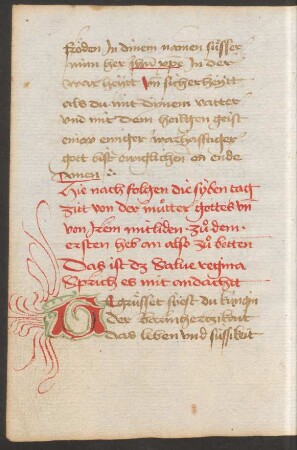 fröden Jn dinem namen süsser
min her jhu xpe Jn der
warheytt vn sicherheytt
als du mit dinem vatter
vnd mit dem heiligen geist
einer warhafftiger
gott bist ewiglichen on ende
Amen
Hie nach folgen die syben tag
zitt von der mutter gottes vn
von Jrem mitliden zu dem
ersten heb an also zu betten
Das ist dz Salue regina
Sprich es mit andachtt
Gegrüsset siest du küngin
der barmhertzikait
das leben vnd süssikeit